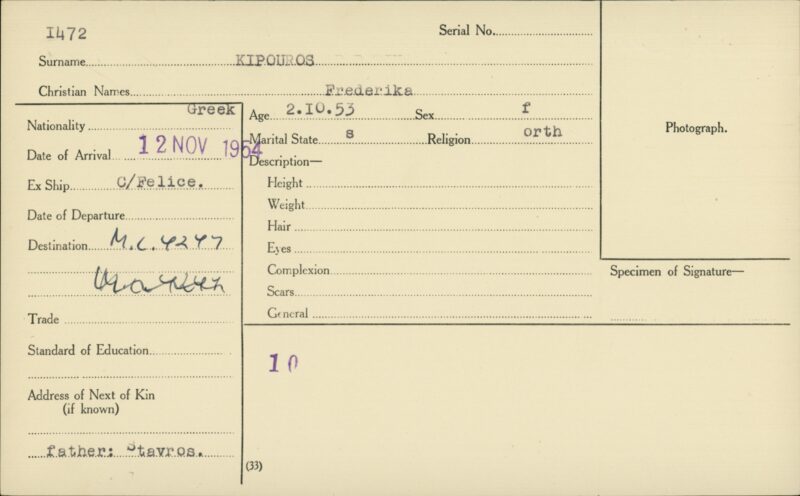 I472
Serial No.
Surname KIPOUROS
Christian Names Frederika
Nationality Greek
Date of Arrival 12 NOV 1954
Ex Ship C/Felice.
Date of Departure
Destination M.C. 4247
Trade
Standard of Education
Address of Next of Kin
(if known)
father: Stavros.
Age 2.IO.53 Sex f
Marital State s Religion orth
Description—
Height
Weight
Hair
Eyes
Complexion
Scars
General
10
(33)
Photograph.
Specimen of Signature—